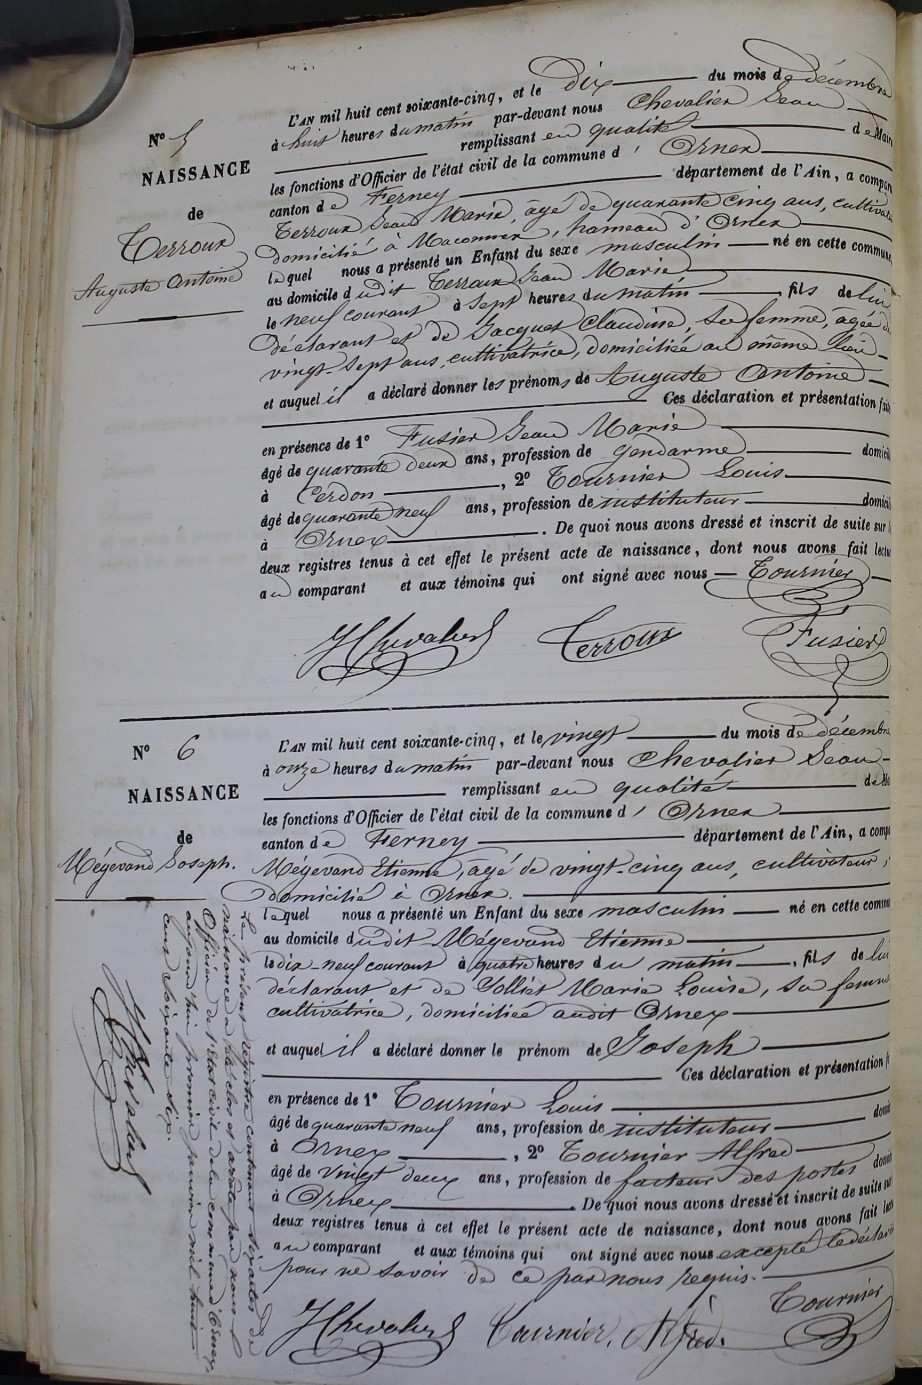 N° 5
NAISSANCE
de
Terroux
Auguste Antoine
L'AN mil huit cent soixante-cinq, et le dix du mois de décembre
à huit heures du matin par-devant nous Chevalier Jean
remplissant en qualité de Maire
les fonctions d'Officier de l'état civil de la commune d' Ornex
canton de Ferney département de l'Ain, a comparu
Terroux Jean Marie, âgé de quarante cinq ans, cultivateur
domicilié à Maconnex, hameau d'Ornex
lequel nous a présenté un Enfant du sexe masculin né en cette commune
au domicile dudit Terroux Jean Marie
le neuf courant à sept heures du matin, fils de lui
déclarant et de Jacquet Claudine, sa femme, âgée de
vingt-sept ans, cultivatrice, domiciliée au même lieu
et auquel il a déclaré donner les prénoms de Auguste Antoine
Ces déclaration et présentation faites
en présence de 1° Fusier Jean Marie
âgé de quarante deux ans, profession de gendarme domicilié
à Cerdon, 2° Tournier Louis
âgé de quarante neuf ans, profession de instituteur domicilié
à Ornex. De quoi nous avons dressé et inscrit de suite sur les
deux registres tenus à cet effet le présent acte de naissance, dont nous avons fait lecture
au comparant et aux témoins qui ont signé avec nous Tournier
JChevalier Terroux Fusier
N° 6
NAISSANCE
de
Mégevand Joseph.
L'AN mil huit cent soixante-cinq, et le vingt du mois de décembre
à onze heures du matin par-devant nous Chevalier Jean
remplissant en qualité de Maire
les fonctions d'Officier de l'état civil de la commune d' Ornex
canton de Ferney département de l'Ain, a comparu
Mégevand Etienne, âgé de vingt-cinq ans, cultivateur,
domicilié à Ornex.
lequel nous a présenté un Enfant du sexe masculin né en cette commune
au domicile dudit Mégevand Etienne
le dix-neuf courant à quatre heures du matin, fils de lui
déclarant et de Jolliet Marie Louise, sa femme
cultivatrice, domiciliée audit Ornex
et auquel il a déclaré donner le prénom de Joseph
Ces déclaration et présentation faites
en présence de 1° Tournier Louis
âgé de quarante neuf ans, profession de instituteur domicilié
à Ornex, 2° Tournier Alfred
âgé de vingt deux ans, profession de facteur des postes domicilié
à Ornex. De quoi nous avons dressé et inscrit de suite sur
deux registres tenus à cet effet le présent acte de naissance, dont nous avons fait lecture
au comparant et aux témoins qui ont signé avec nous excepté le déclarant
pour ne savoir de ce par nous requis.
JChevalier Tournier Alfred. Tournier
Le présent registre contenant six actes de
naissance a été clos et arrêté par nous
Officier de l'Etat civil de la commune d'Ornex
aujourd'hui premier janvier mil huit
cent soixante-six.
JChevalier